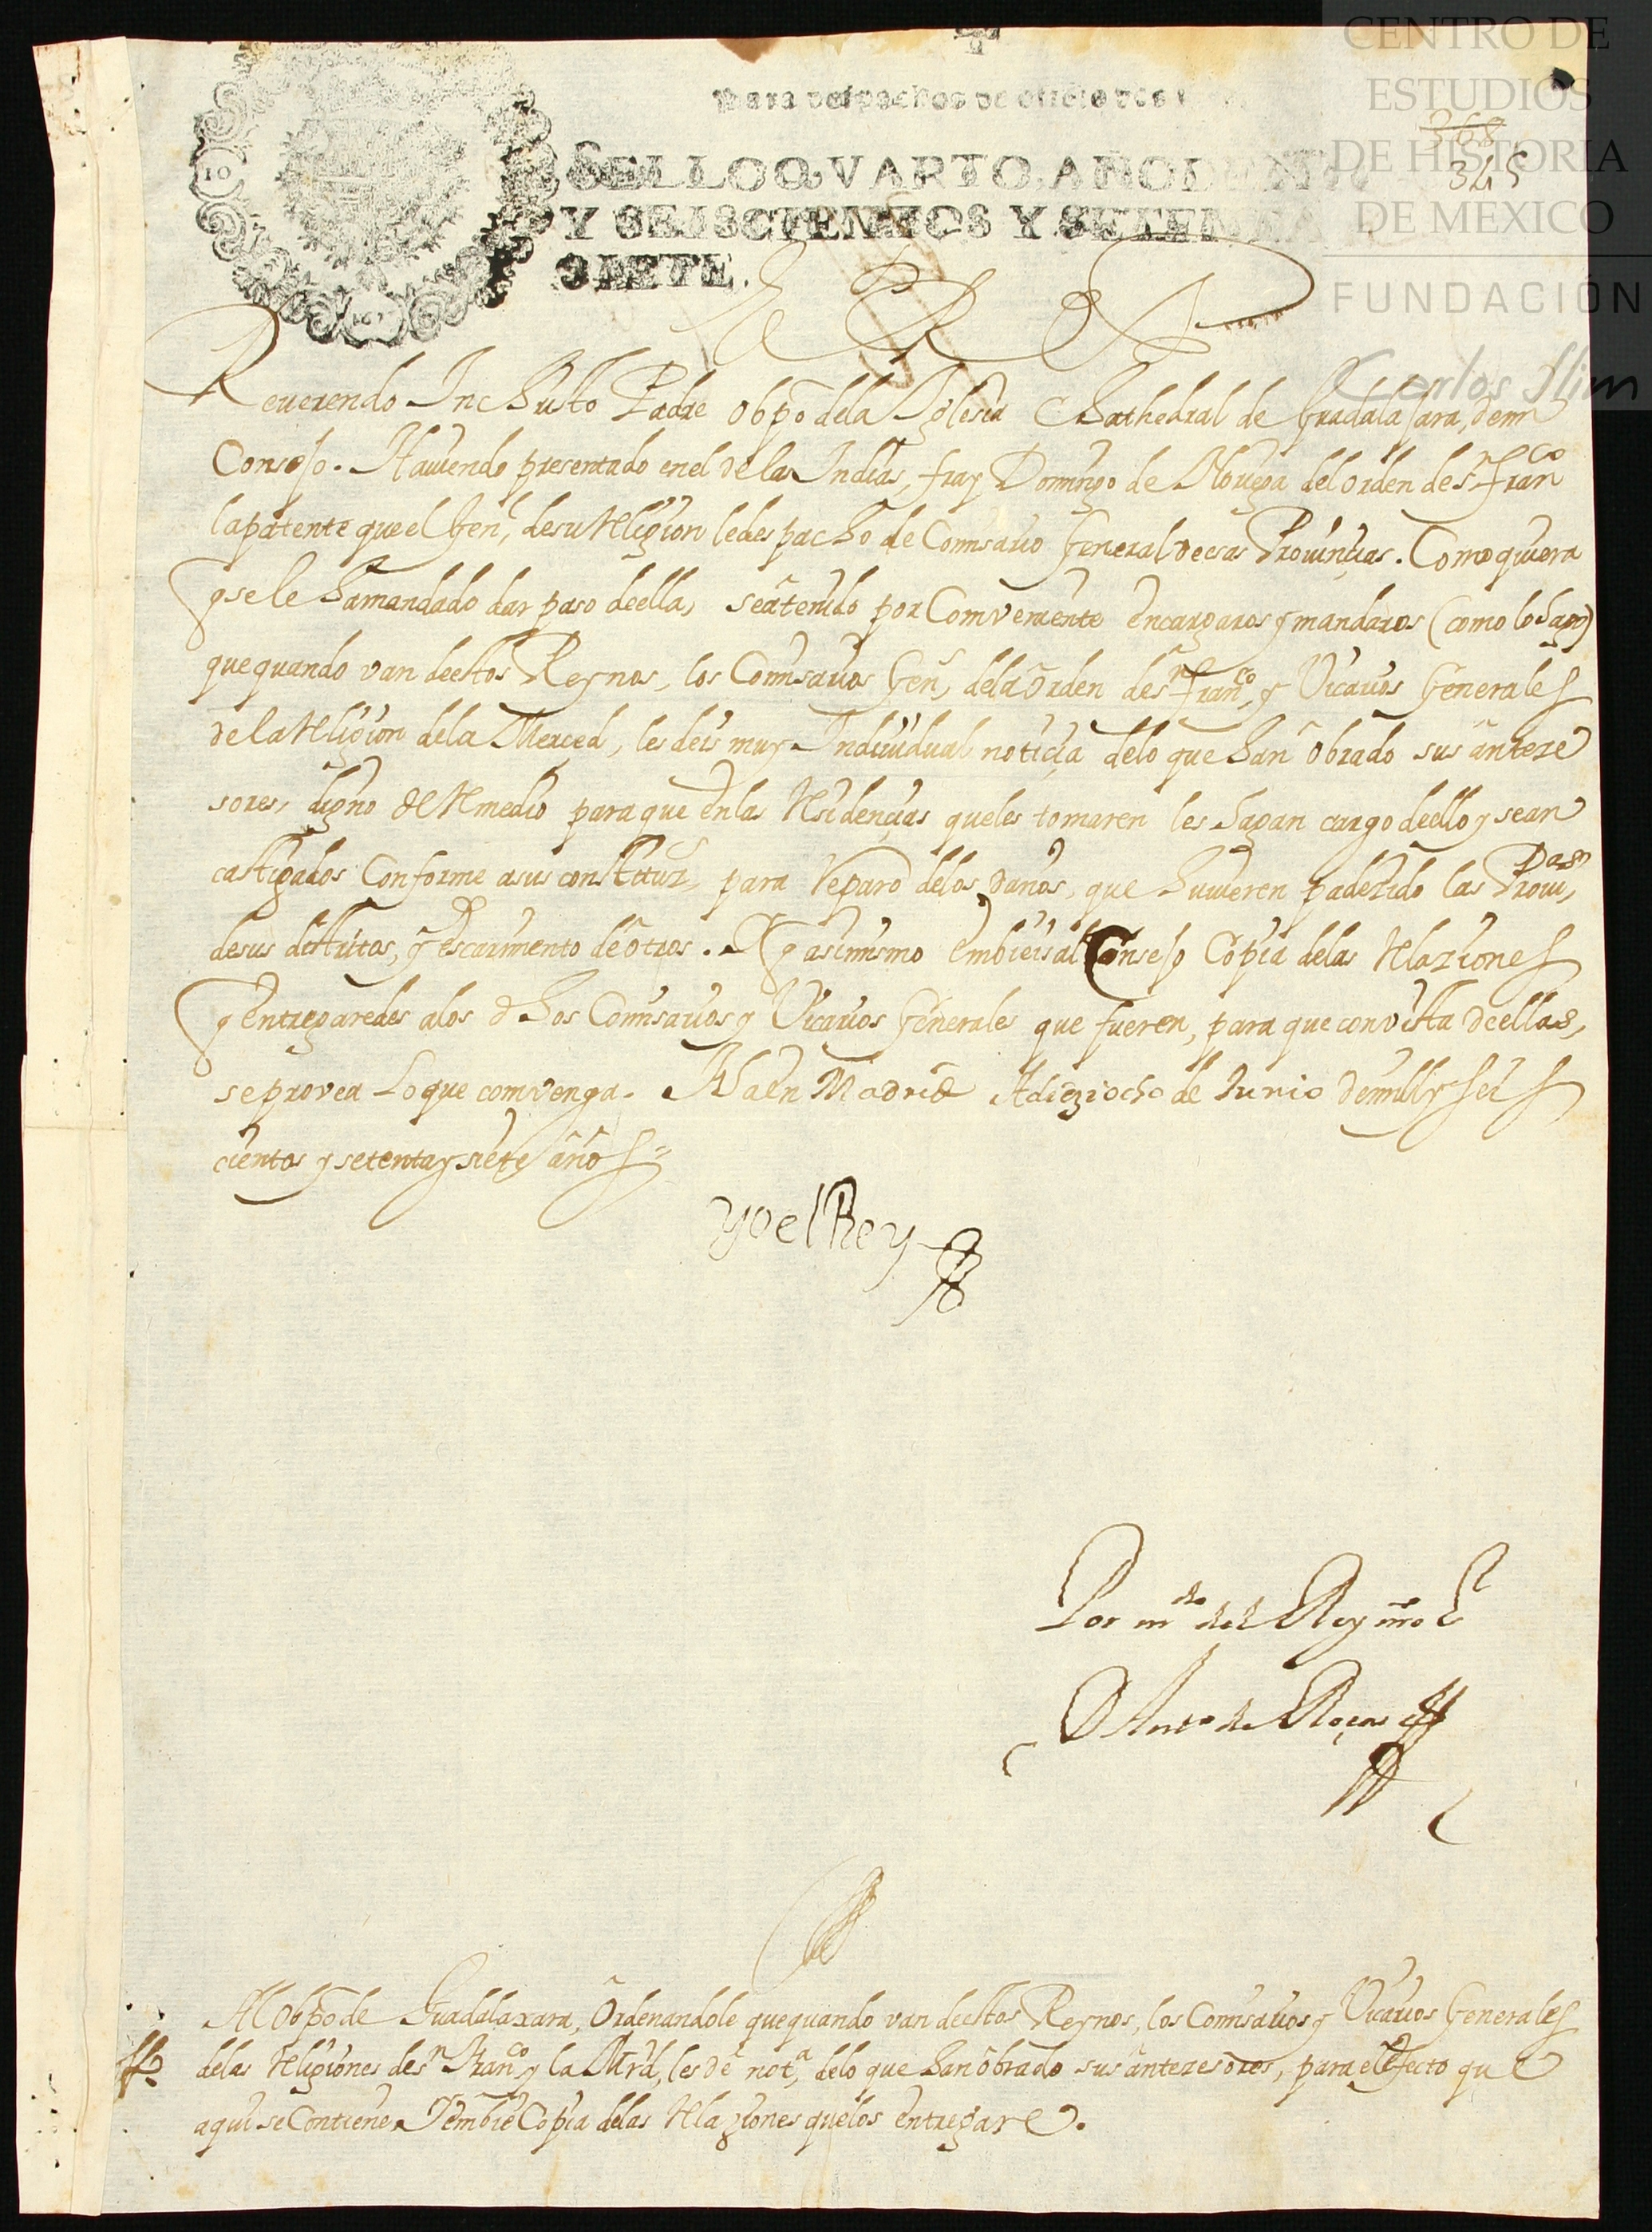 CENTRO DE
ESTUDIOS
DE HISTORIA
DE MÉXICO
FUNDACIÓN
Carlos Slim
Para despachos de oficio dos
368
345
SELLO QVARTO, AÑO DE MIL
Y SEISCIENTOS Y SETENTA
SIETE.
10
El Rey
Reuerendo In Christo Padre Obpo dela Iglesia Cathedral de Guadalajara, de mi
Consejo. Hauiendo presentado en el de las Indias, fray Domingo de Noriega del orden de Sn. Franco
la patente que el Genl, de su Religion le despacho de Comisario General de esas Prouinçias. Como quiera
q se le ha mandado dar paso de ella, se à tenido por Comveniente encargaros y mandaros (como lo hago)
que quando van de estos Reynos, los Comisarios Gens, dela Orden de Sn Franco, y Vicarios Generales
de la Religion dela Merced, les deis muy Indiuidual notiçia delo que han obrado sus anteze
sores, digno de Remedio para que en las Residençias que les tomaren les hagan cargo de ello y sean
castigados Conforme a sus constituzs, para Reparo delos daños, que huuieren padezido las Prouas,
de sus distritos, y escarmiento de otros. Y asimismo embieis al Consejo Copia delas Relaziones
q entregaredes alos dhos Comisarios y Vicarios Generales que fueren, para que con vista de ellas,
se provea Lo que comvenga. Fha en Madrid A diez i ocho de Junio de mill y seis
cientos y setenta y siete años =
yo el Rey
Por mdo del Rey nro Sr
Al Obpo de Guadalaxara, Ordenandole que quando van de estos Reynos, los Comisarios y Vicarios Generales
delas Religiones de Sn Franco y la Mrd, les dè nota, delo que han obrado sus antezesores, para el efecto que
aqui se Contiene. Y embie Copia delas Relaziones que los entregare.